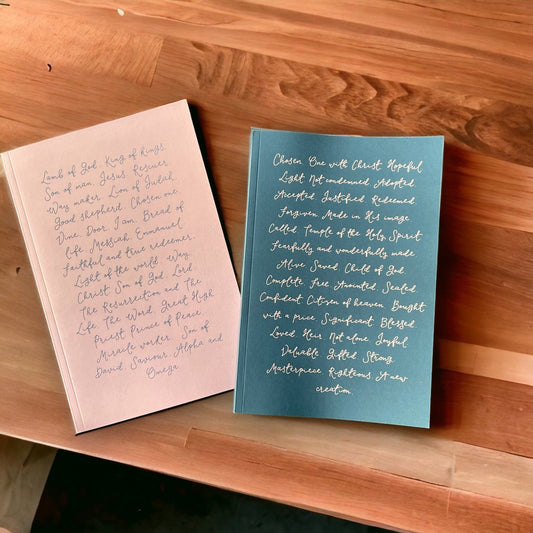 Lamb of God. King of kings.
Son of man. Jesus. Rescuer.
Way maker. Lion of Judah
Good shepherd. Chosen one.
Vine. Door. I am. Bread of
life. Messiah. Emmanuel
Faithful and true redeemer.
Light of the world. Way.
Christ. Son of God. Lord
The Resurrection and The
Life. The Word. Great High
Priest. Prince of Peace
Miracle worker. Son of
David. Saviour. Alpha and
Omega
Chosen. One with Christ. Hopeful
Light. Not condemned. Adopted.
Accepted. Justified. Redeemed.
Forgiven. Made in His image
Called. Temple of the Holy Spirit
Fearfully and wonderfully made
Alive. Saved. Child of God.
Complete. Free. Anointed. Sealed.
Confident. Citizen of heaven. Bought
with a price. Significant. Blessed.
Loved. Heir. Not alone. Joyful
Valuable. Gifted. Strong.
Masterpiece. Righteous. A new
creation.